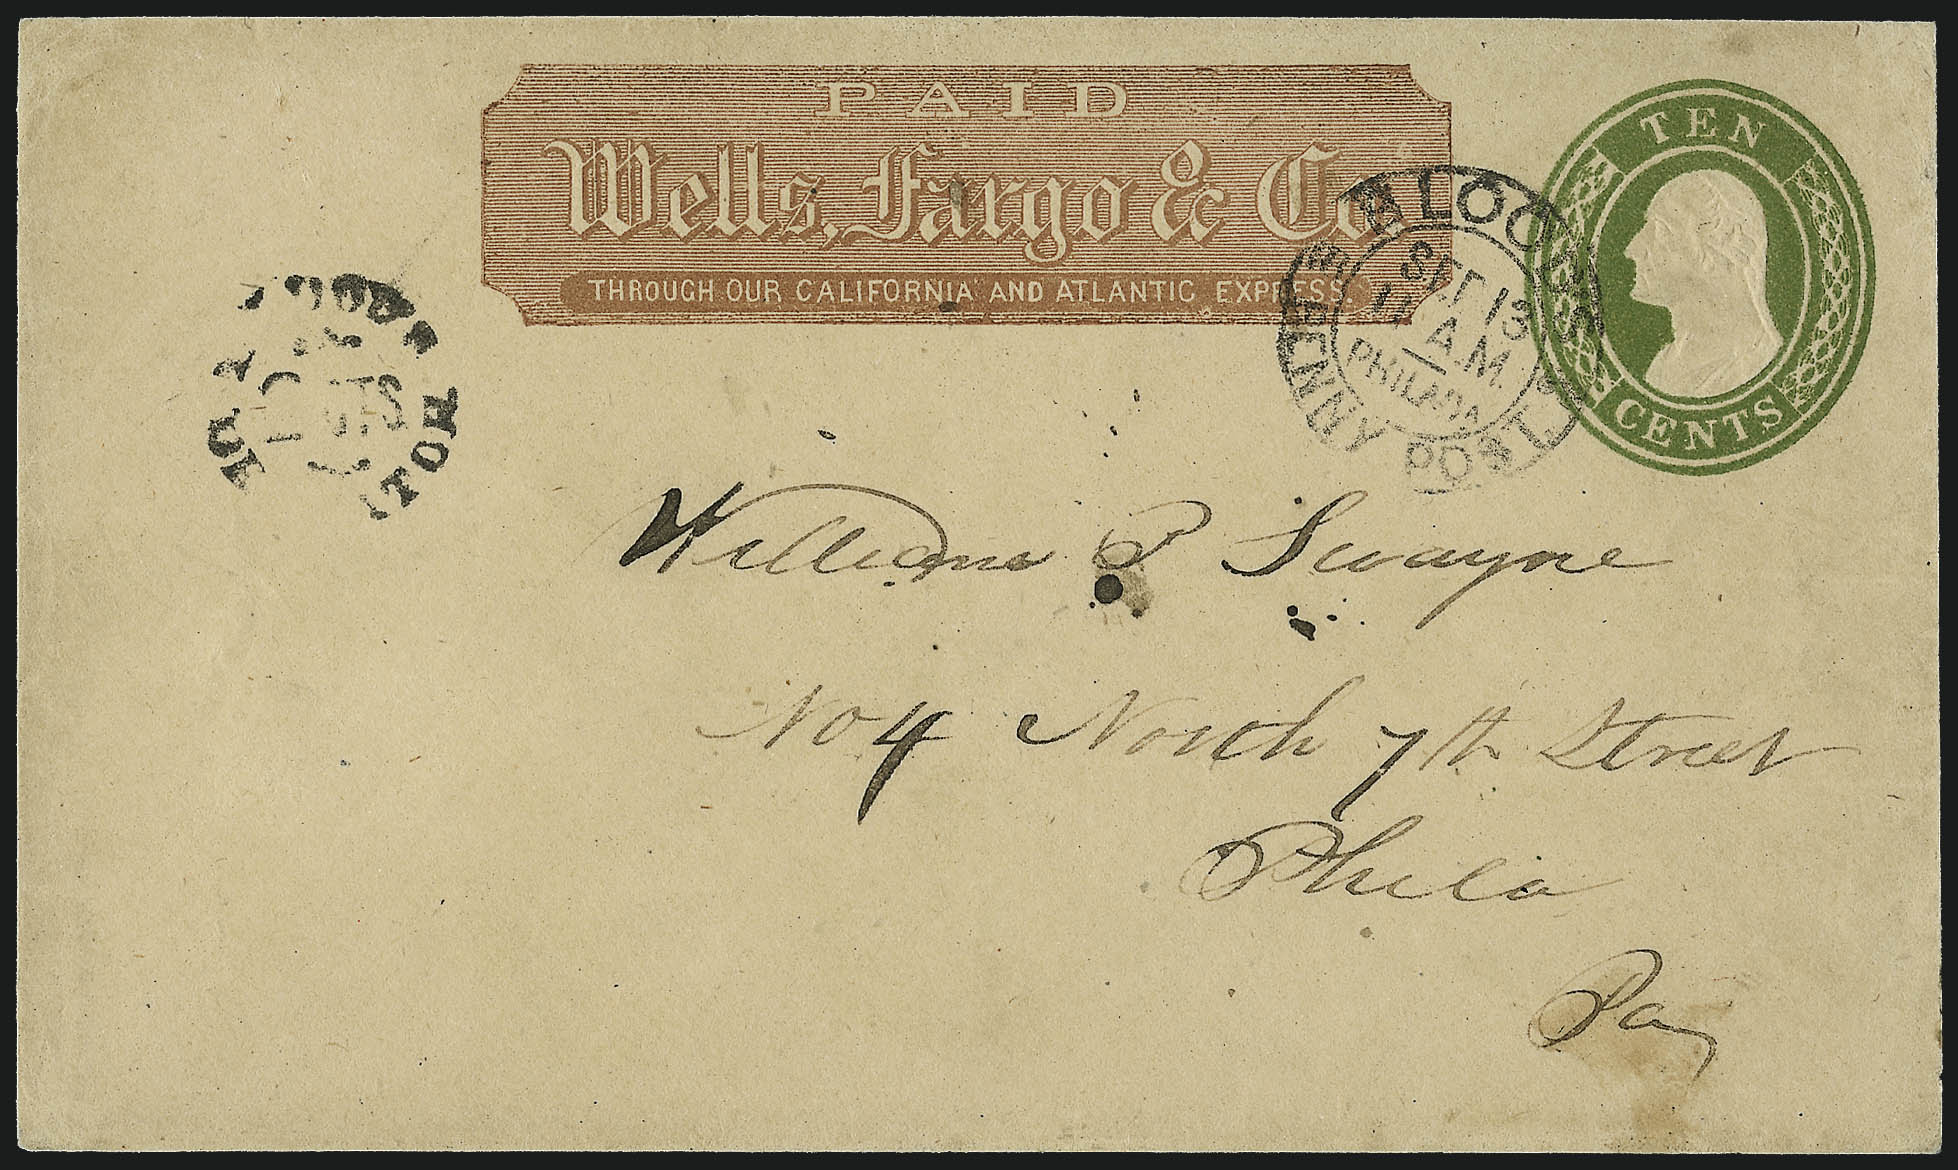 PAID
Wells, Fargo & Co
THROUGH OUR CALIFORNIA AND ATLANTIC EXPRESS.
TEN
CENTS
BLOOD'S
PENNY POST
SEPT 13
11 A.M.
PHILADA
William P Swayne
No 4 North 7th Street
Phila
Pa